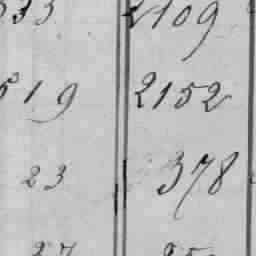 533 2109
519 2152
23 378